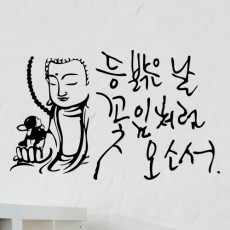 등 밝은 날
꽃잎처럼
오소서.